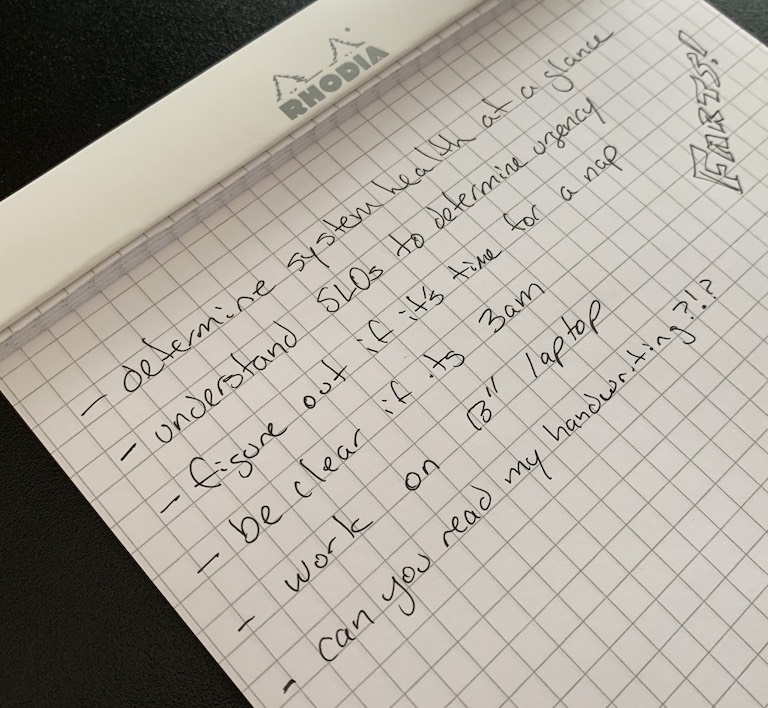 RHODIA
FARTS!
- determine system health at a glance
- understand SLOs to determine urgency
- figure out if it's time for a nap
- be clear if its 3am
- work on 13" laptop
- can you read my handwriting?!?